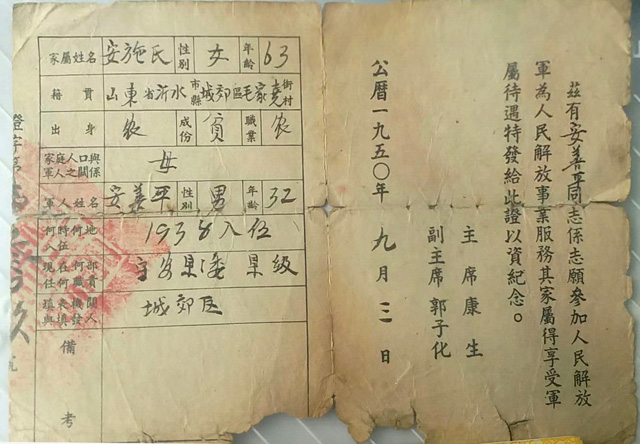 茲有安善平同志係志願參加人民解放
軍為人民解放事業服務其家屬得享受軍
屬待遇特發給此證以資紀念。
主席康生
副主席郭子化
公曆一九五〇年九月三日
家屬姓名 安施氏 性別 女 年齡 63
籍貫 山東省沂水市縣城郊區毛家堯街村
出身 农 成份 貧 職業 农
家庭人口與軍人之關係 母
軍人姓名 安善平 性別 男 年齡 32
何時何地入伍 1938入伍
現在何部任何職 县級
填發機關與填發人 城郊区
備考
證字第